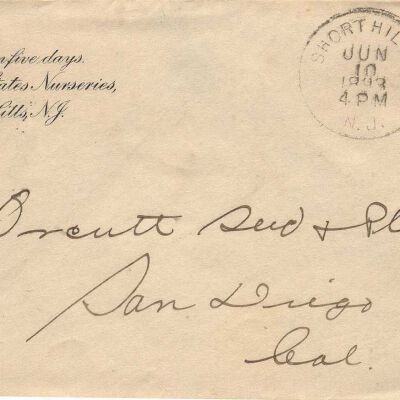 n five days.
ates Nurseries,
ills, N.J.
SHORT HIL
JUN
10
1893
4 PM
N.J.
Orcutt Seed & Pl
San Diego
Cal.